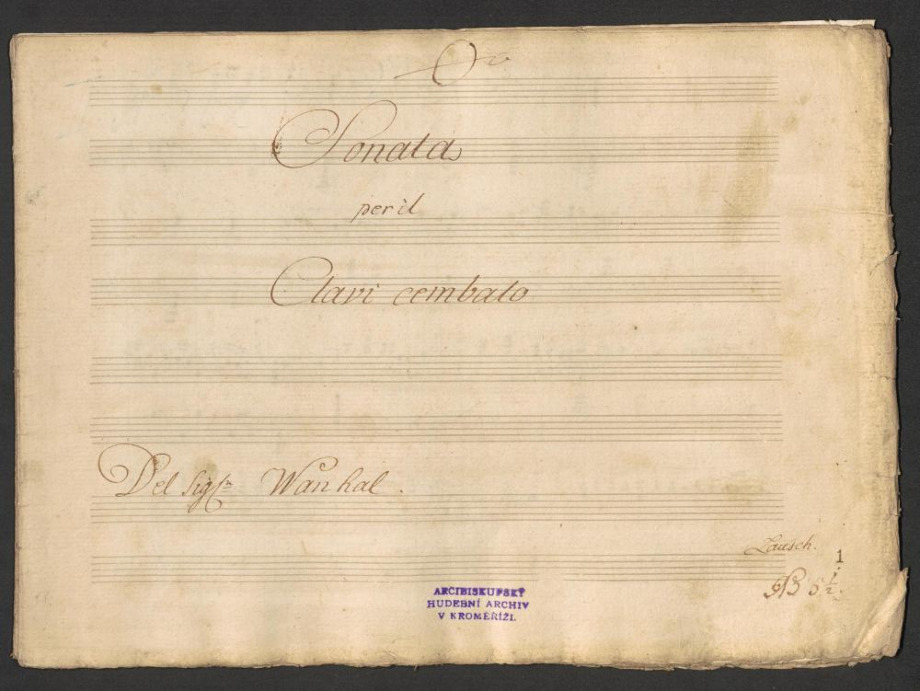 Sonata
per il
Clavi cembalo
Del Sig:re Wanhal.
Lausch.
1
B 5 1/2.
ARCIBISKUPSKÝ
HUDEBNÍ ARCHIV
V KROMĚŘÍŽI.